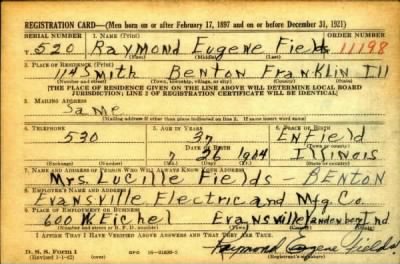 REGISTRATION CARD—(Men born on or after February 17, 1897 and on or before December 31, 1921)
SERIAL NUMBER 1. NAME (Print) ORDER NUMBER
T. 520 Raymond Eugene Fields 11198
(First) (Middle) (Last)
2. PLACE OF RESIDENCE (Print)
114 Smith Benton Franklin Ill
(Number and street) (Town, township, village, or city) (County) (State)
[THE PLACE OF RESIDENCE GIVEN ON THE LINE ABOVE WILL DETERMINE LOCAL BOARD
JURISDICTION; LINE 2 OF REGISTRATION CERTIFICATE WILL BE IDENTICAL]
3. MAILING ADDRESS
Same
(Mailing address if other than place indicated on line 2. If same insert word same)
4. TELEPHONE 5. AGE IN YEARS 6. PLACE OF BIRTH
530 37 Enfield
DATE OF BIRTH (Town or county)
7 26 1904 Illinois
(Mo.) (Day) (Yr.) (State or country)
7. NAME AND ADDRESS OF PERSON WHO WILL ALWAYS KNOW YOUR ADDRESS
Mrs. Lucille Fields - BENTON
8. EMPLOYER'S NAME AND ADDRESS
Evansville Electric and Mfg. Co.
9. PLACE OF EMPLOYMENT OR BUSINESS
600 W. Eichel Evansville Vanderberg Ind
(Number and street or R. F. D. number) (Town) (County) (State)
I AFFIRM THAT I HAVE VERIFIED ABOVE ANSWERS AND THAT THEY ARE TRUE.
D. S. S. Form 1
(Revised 1-1-42)
Raymond Eugene Fields